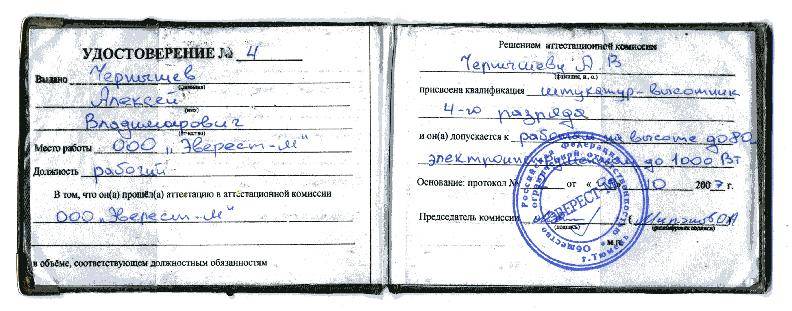 УДОСТОВЕРЕНИЕ № 4
Выдано Чернышев
(фамилия)
Алексей
(имя)
Владимирович
(отчество)
Место работы ООО „Эверест-М"
Должность рабочий
В том, что он(а) прошёл(а) аттестацию в аттестационной комиссии
ООО „Эверест-М"
в объёме, соответствующем должностным обязанностям
Решением аттестационной комиссии
Чернышеву А В
(фамилия, и., о.)
присвоена квалификация штукатур-высотник
4-го разряда
и он(а) допускается к работам на высоте до 80
до 1000 Вт
Основание: протокол № от « 10 2007 г.
Председатель комиссии
(подпись) (расшифровка подписи)
М.П.
Российская Федерация
ограниченной ответственностью
Общество
ЭВЕРЕСТ-М
г. Тюмень